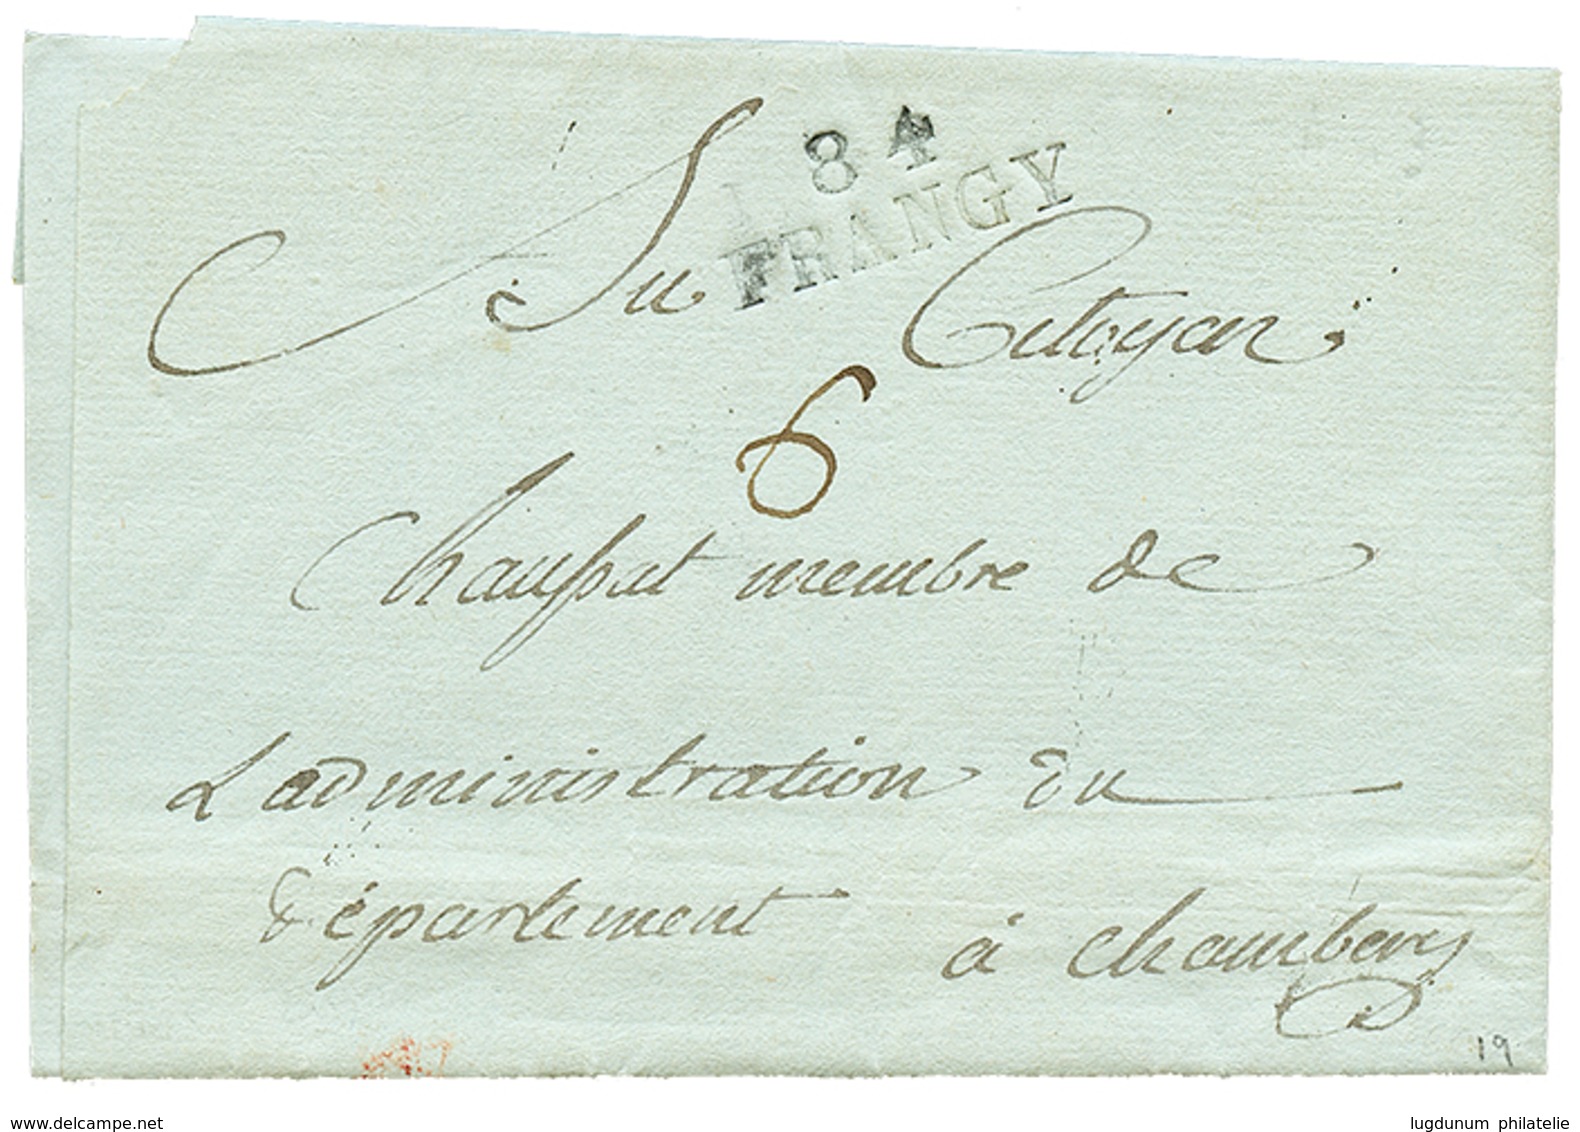 84
FRANGY
Au Citoyen
6
Chaussat membre de
Ladministration du
département
à chambery
19
www.delcampe.net
lugdunum philatelie